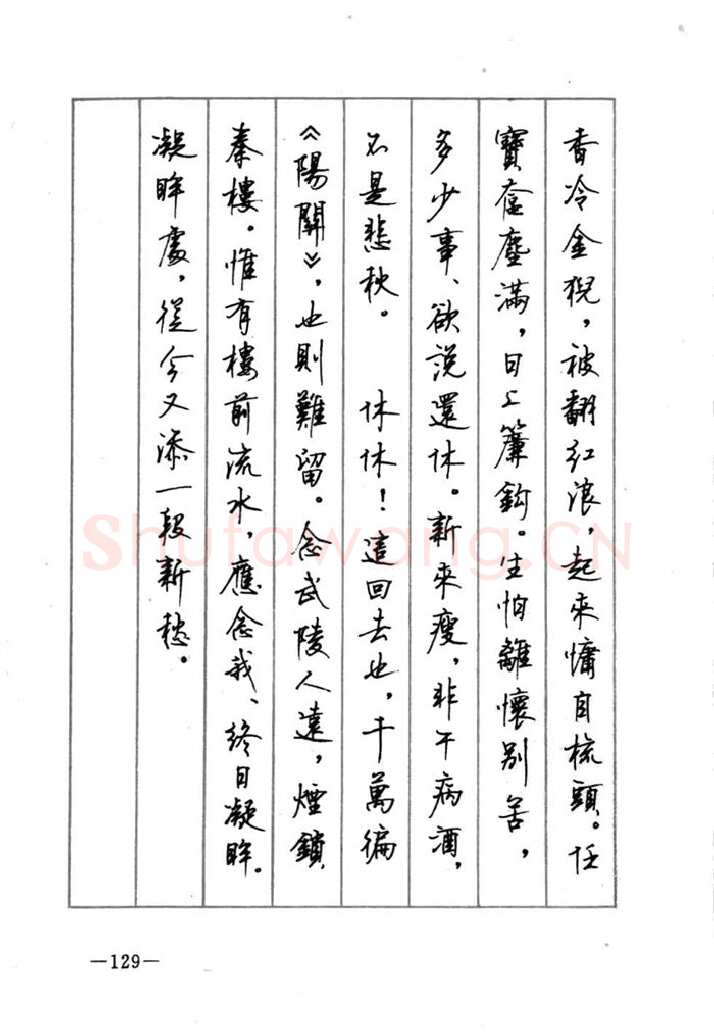 香冷金猊，被翻紅浪，起來慵自梳頭。任
寶奩塵滿，日上簾鉤。生怕離懷別苦，
多少事、欲說還休。新來瘦，非干病酒，
不是悲秋。　　休休！這回去也，千萬徧
《陽關》，也則難留。念武陵人遠，煙鎖
秦樓。惟有樓前流水，應念我、終日凝眸。
凝眸處，從今又添一段新愁。
Shufawang.CN
—129—